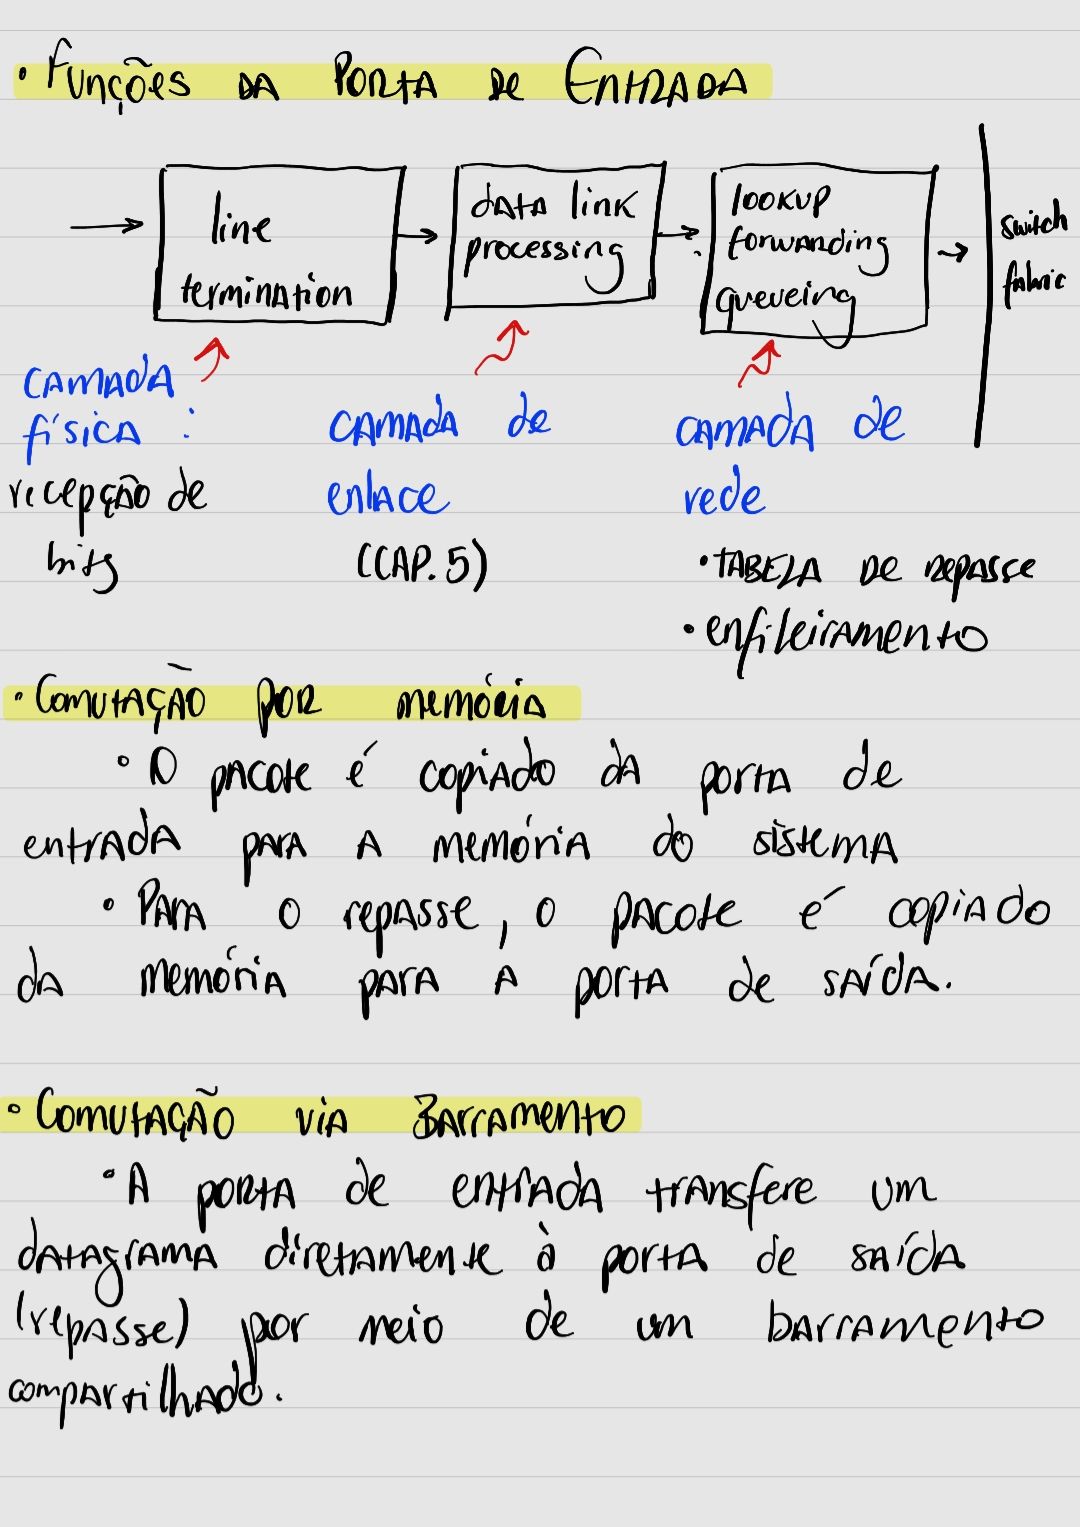 • Funções da Porta de Entrada
line
termination
data link
processing
lookup
forwarding
queueing
switch
fabric
camada
física :
recepção de
bits
camada de
enlace
(CAP. 5)
camada de
rede
• Tabela de repasse
• enfileiramento
• Comutação por memória
• O pacote é copiado da porta de
entrada para a memória do sistema
• Para o repasse, o pacote é copiado
da memória para a porta de saída.
• Comutação via Barramento
• A porta de entrada transfere um
datagrama diretamente à porta de saída
(repasse) por meio de um barramento
compartilhado.